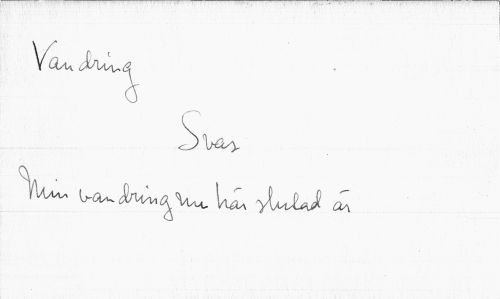 Vandring
Svar
Min vandring nu här slutad är